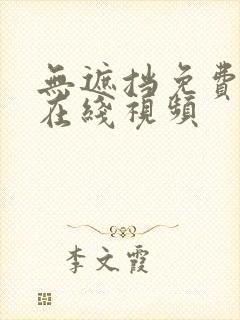 無遮挡免費
在綫視頻
李文霞